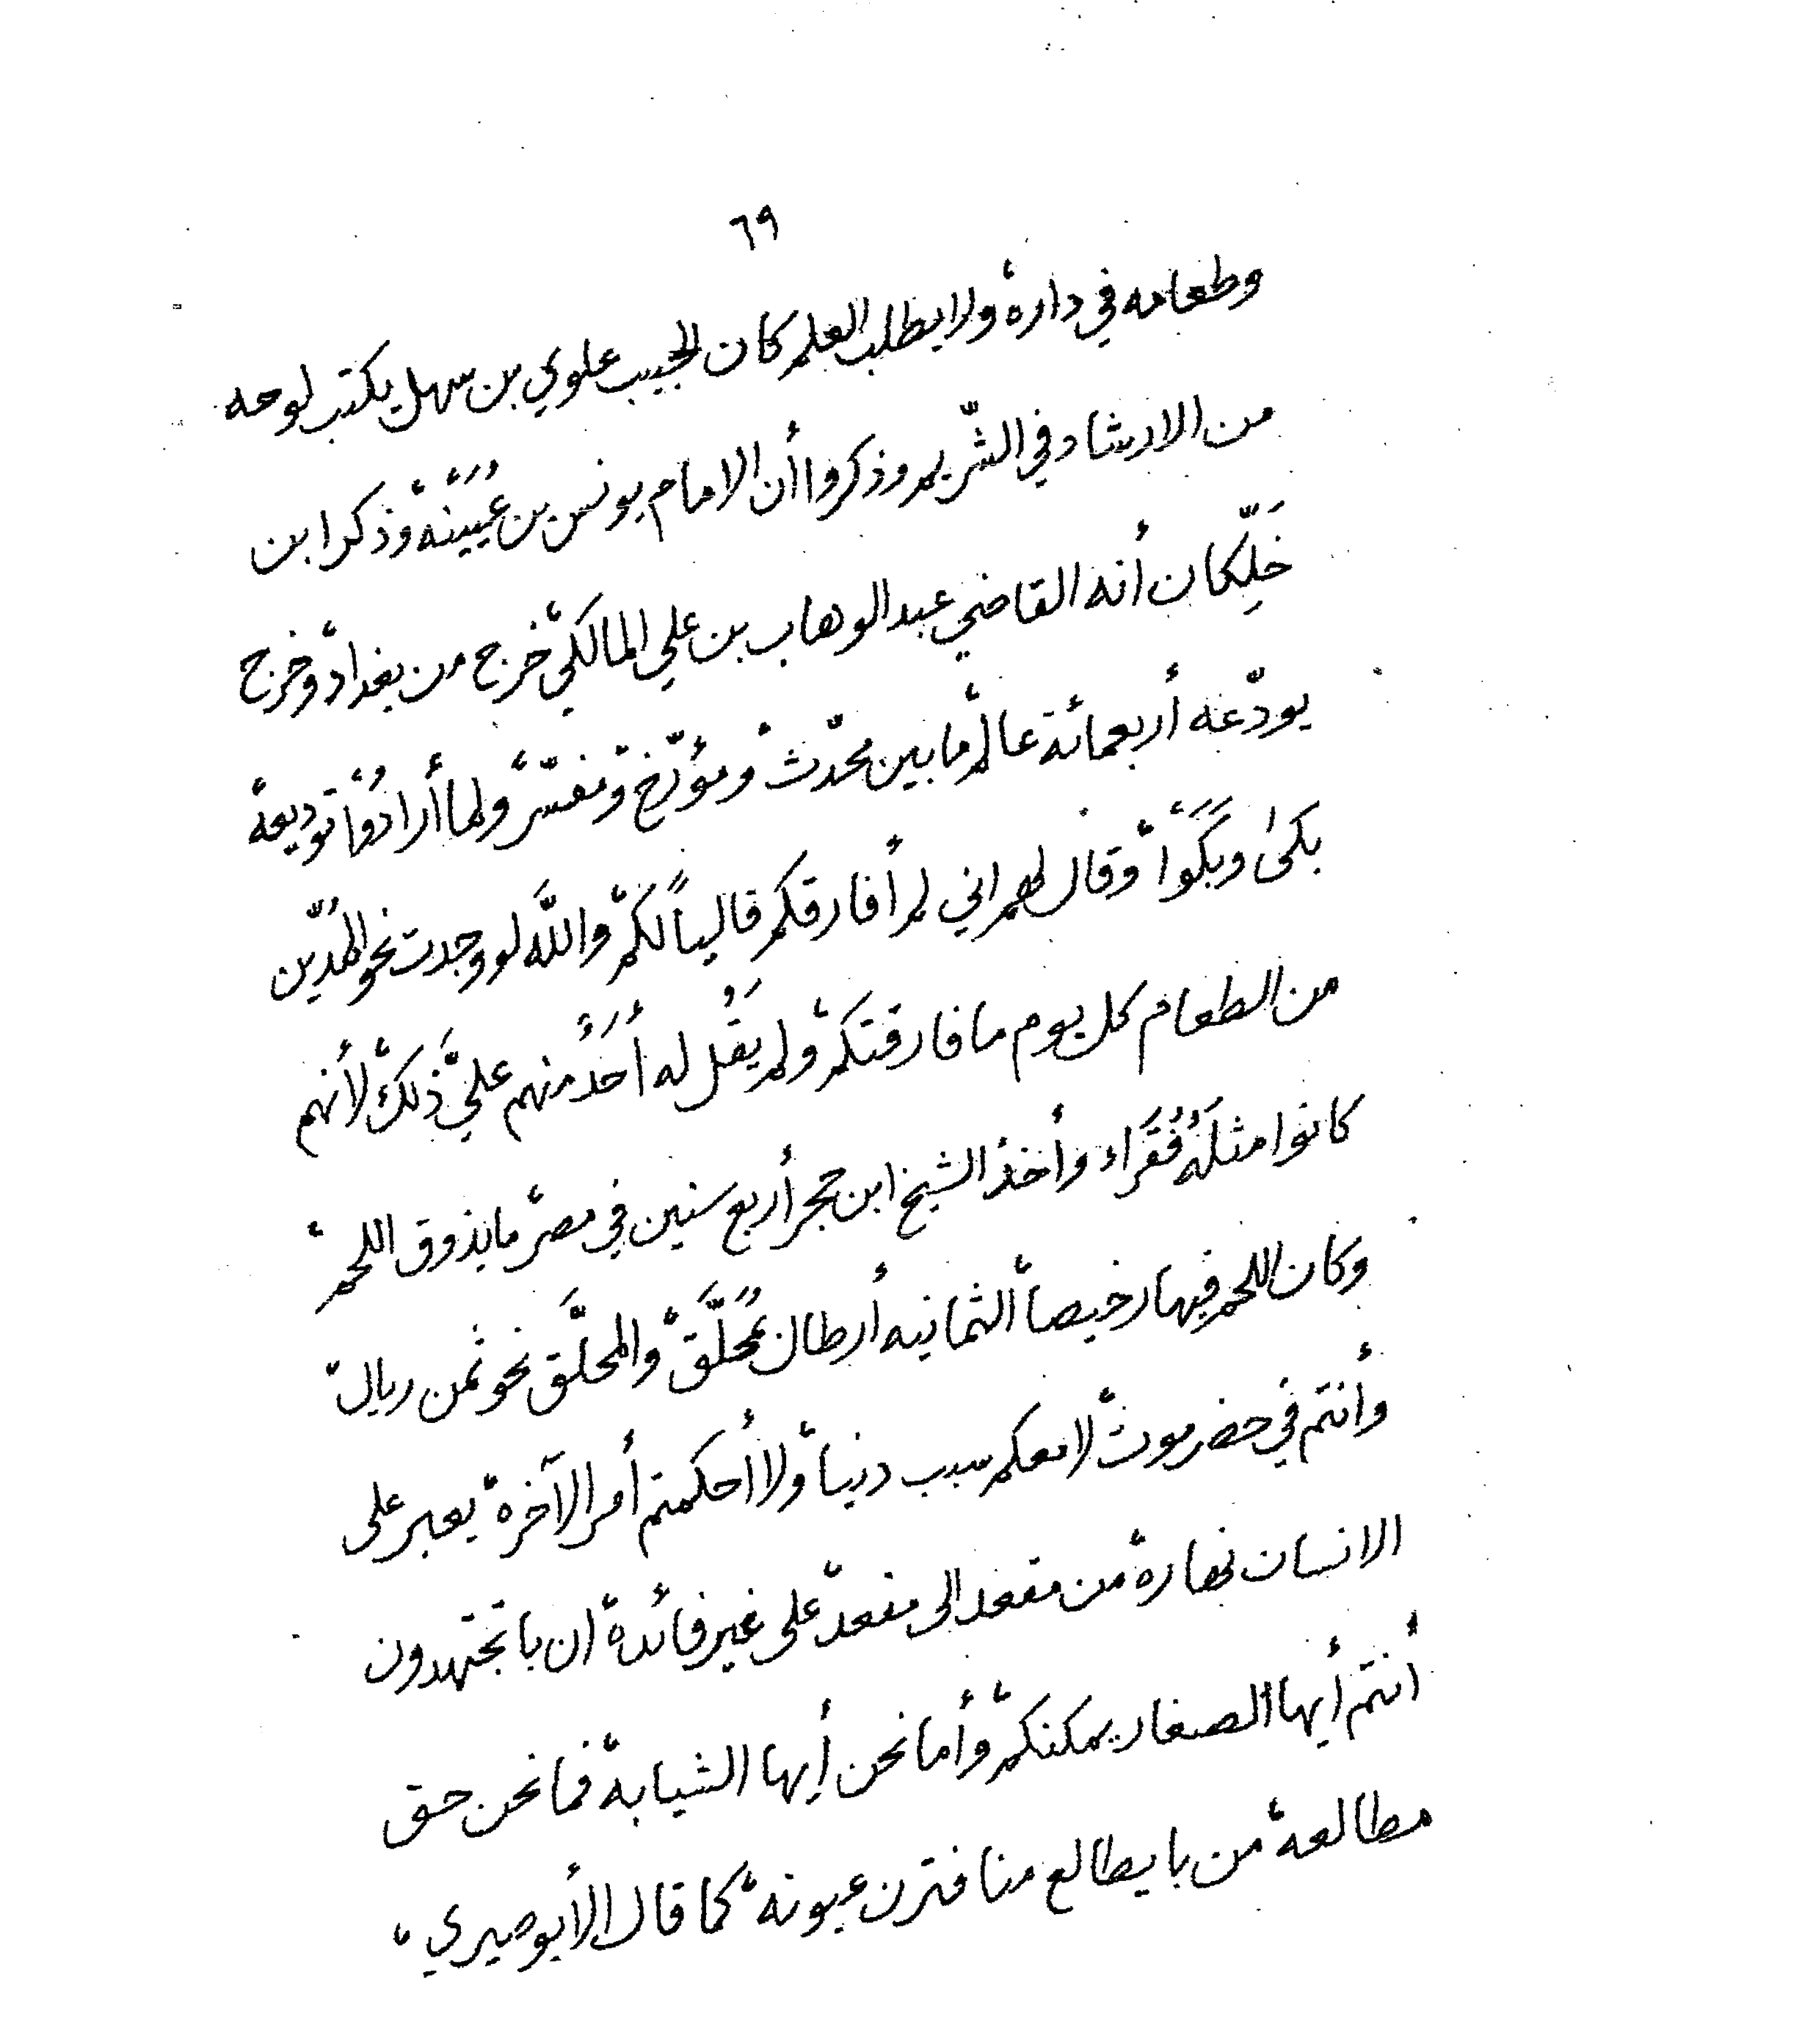 ٦٩
وطعامه في داره، ولا يطلب العلم كان الحبيب علوي بن سهل يكتب لوحه
من الارشاد في الشّريم وذكروا أن الامام يونس بن عُيَيْنه، وذكر ابن
خَلِّكان أنه القاضي عبد الوهاب بن علي المالكي، خرج من بغداد، وخرج
يودّعه أربعمائة عالم، ما بين محدّث، ومؤرّخ، ومفسّر، ولما أرادُوا توديعه
بكى وبَكَوْا، وقال لهم اني لم أفارقكم قالياً لكم، واللَّه لو وجدت نحو المُدّين
من الطعام كل يوم ما فارقتكم، ولم يَقُل له أحَدُ منهم عليَّ ذلك، لأنهم
كانوا مثلَهُ فُقَراء وأخذ الشيخ ابن حجر أربع سنين في مصر، ما يذوق اللحم،
وكان اللحم فيها رخيصاً، الثمانيه أرطال بمُحلَّق، والمحلَّق نحو ثمن ريال،
وأنتم في حضرموت، لا معكم سبب دنيا، ولا أحكمتم أمر الآخرة، يعبر على
الانسان نهاره، من مقعد الى مقعد، على غير فائدة، ان با تجتهدون
أنتم أيها الصغار يمكنكم، وأما نحن أيها الشيابه، فما نحن حق
مطالعه، من با يطالع منا فترن عيونه، كما قال الأبوصيري،